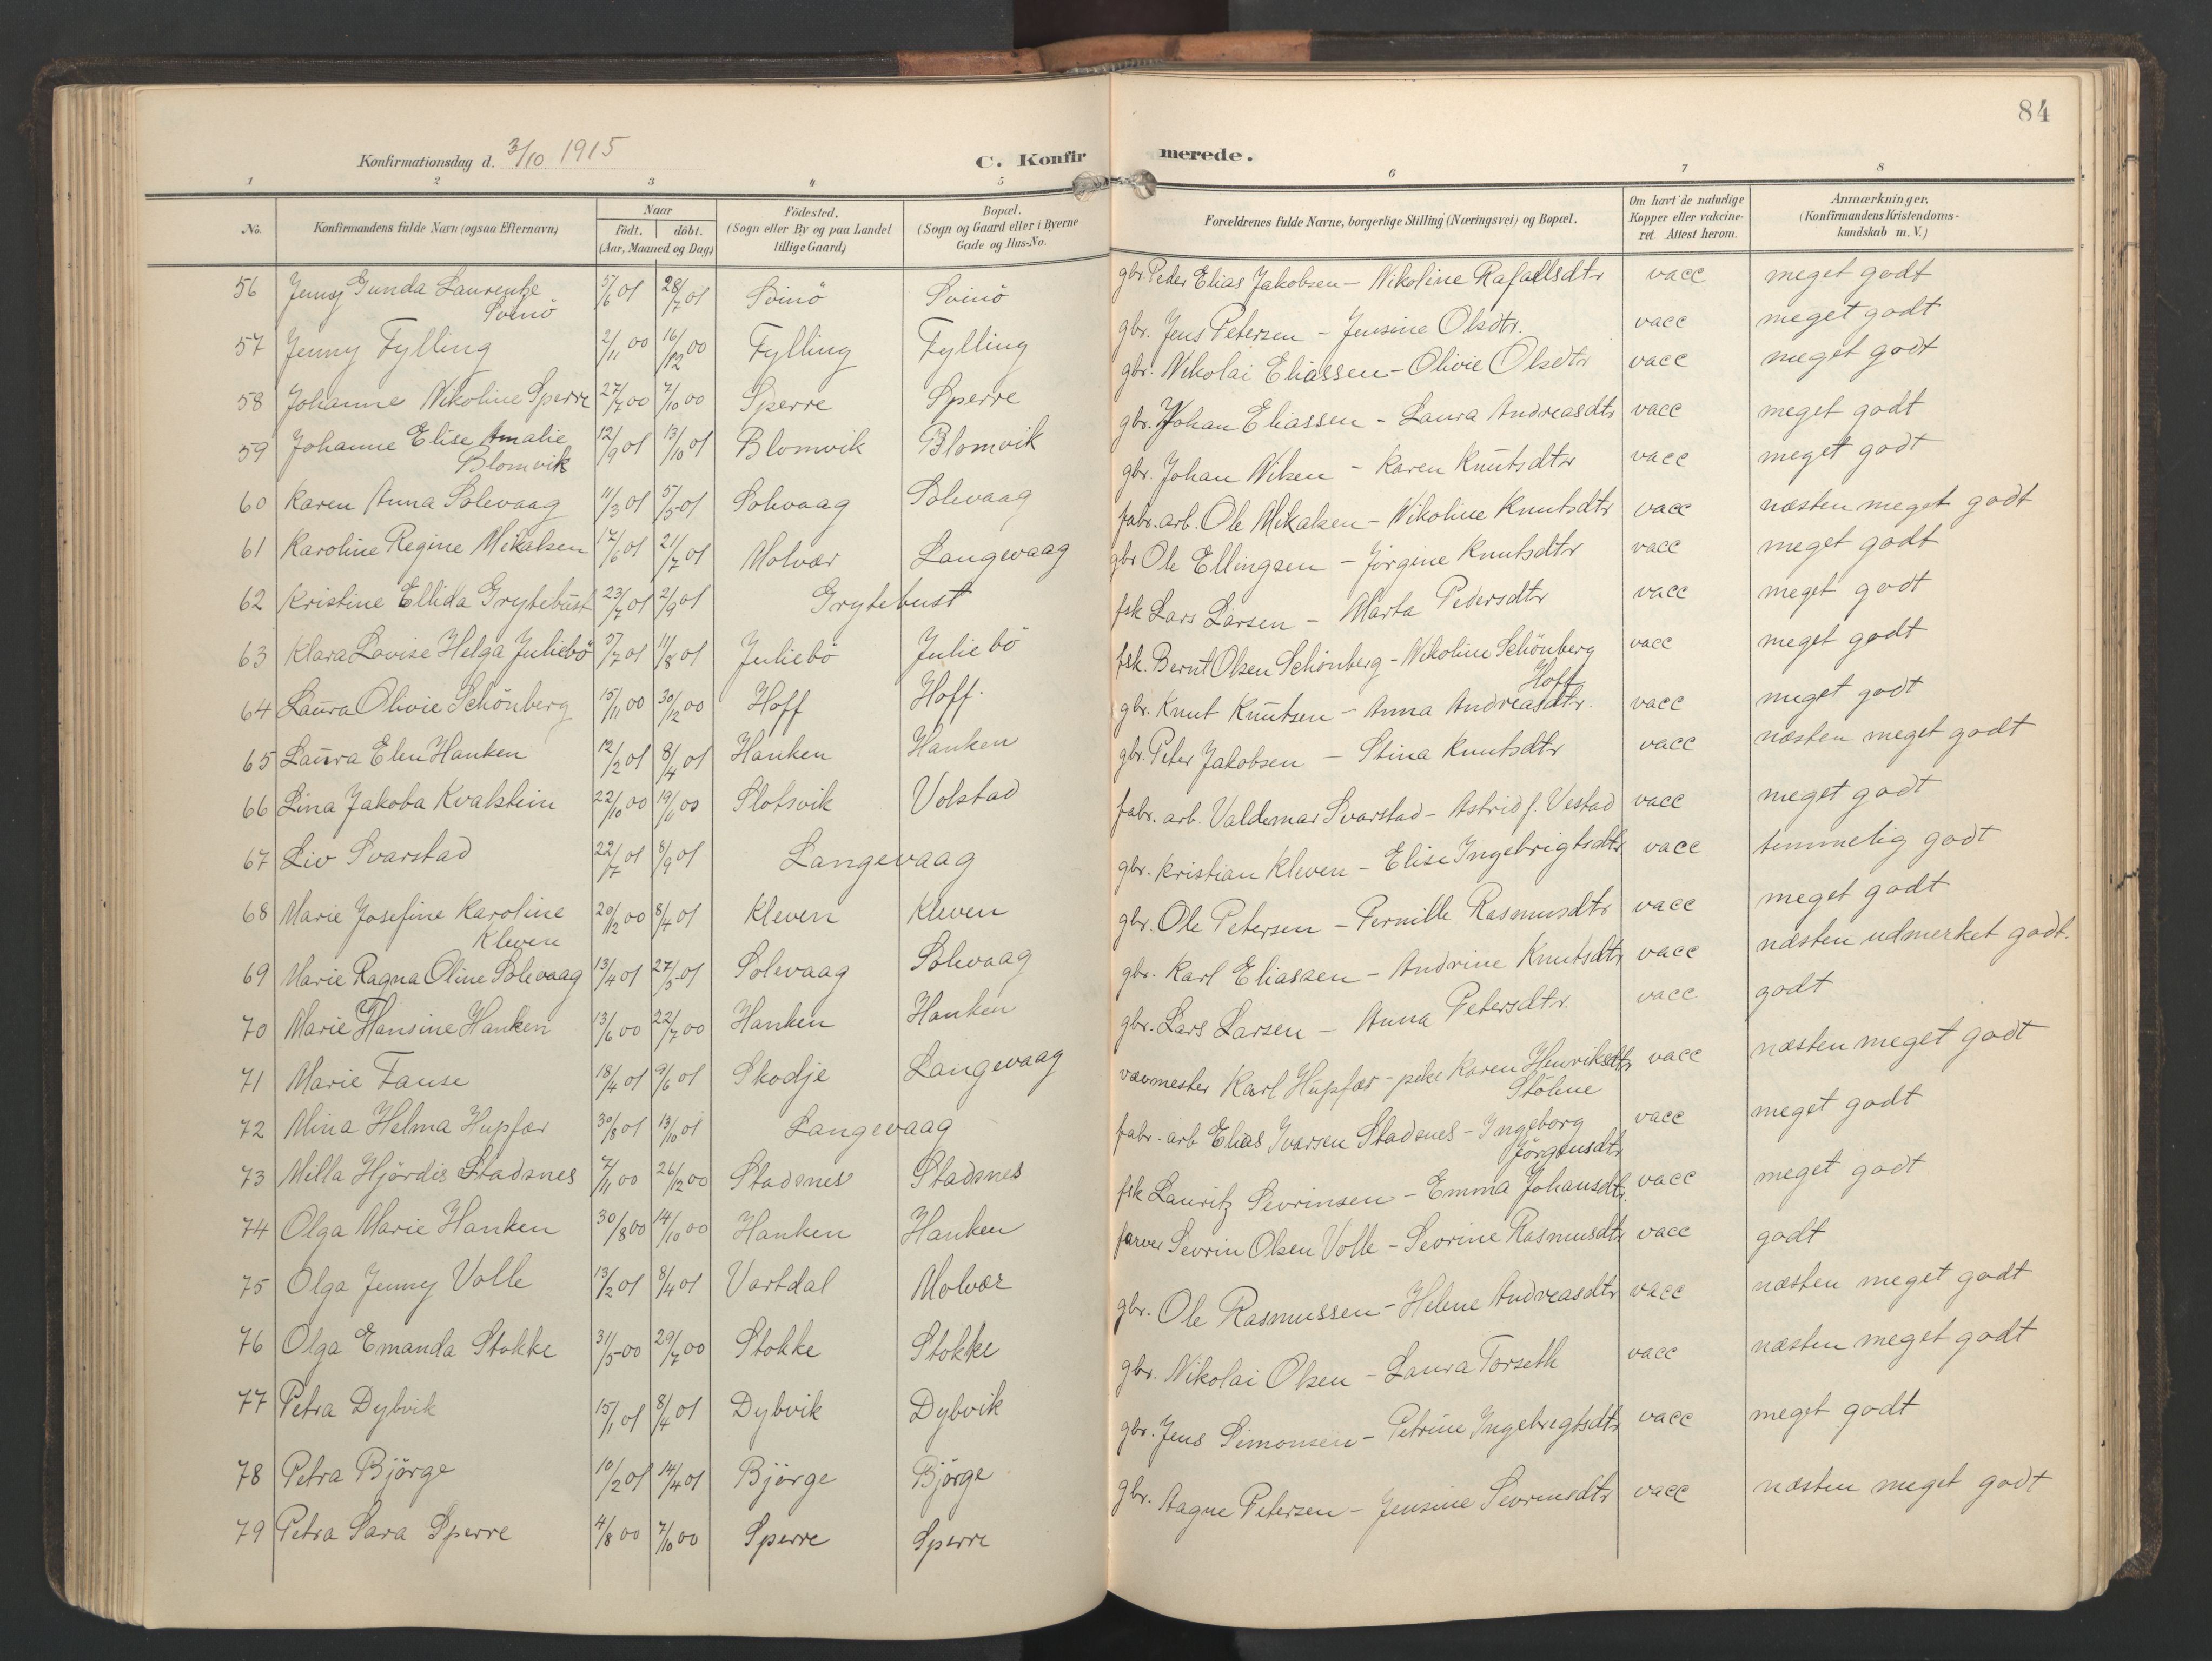 84
Konfirmationsdag d. 3/10 1915
C. Konfirmerede.
1 2 3 4 5 6 7 8
No.
Konfirmandens fulde Navn (ogsaa Efternavn)
Naar
Födt. döbt.
(Aar, Maaned og Dag)
Födested.
(Sogn eller By og paa Landet
tillige Gaard)
Bopæl.
(Sogn og Gaard eller i Byerne
Gade og Hus-No.
Forældrenes fulde Navne, borgerlige Stilling (Næringsvei) og Bopæl.
Om havt de naturlige
Kopper eller vakcine-
ret. Attest herom.
Anmærkninger.
(Konfirmandens Kristendoms-
kundskab m. V.)
56 Jenny Gunda Laurentze 5/6 01 28/7 01 Svinö Svinö gbr. Peder Elias Jakobsen - Nikoline Rafaelsdtr vacc meget godt
Svinö
57 Jenny Fylling 2/11 00 16/12 00 Fylling Fylling gbr. Jens Petersen - Jensine Olsdtr. vacc meget godt
58 Johanne Nikoline Sperre 27/7 00 7/10 00 Sperre Sperre gbr. Nikolai Eliassen - Olivie Olsdtr vacc meget godt
59 Johanne Elise Amalie 12/9 01 13/10 01 Blomvik Blomvik gbr. Johan Eliassen - Laura Andreasdtr vacc meget godt
Blomvik
60 Karen Anna Solevaag 11/3 01 5/5 01 Solevaag Solevaag gbr. Johan Nilsen - Karen Knutsdtr vacc meget godt
61 Karoline Regine Mikalsen 17/6 01 21/7 01 Molvær Langevaag fabr. arb. Ole Mikalsen - Nikoline Knutsdtr vacc næsten meget godt
62 Kristine Ellida Grytebust 23/7 01 2/9 01 Grytebust gbr Ole Ellingsen - Jörgine Knutsdtr vacc meget godt
63 Klara Lovise Helga Juliebö 5/7 01 11/8 01 Juliebö Juliebö fsk Lars Larsen - Marta Pedersdtr vacc meget godt
64 Laura Olivie Schönberg 15/11 00 30/12 00 Hoff Hoff. fsk. Bernt Olsen Schönberg - Nikoline Schönberg vacc meget godt
Hoff
65 Laura Elen Hanken 12/2 01 8/4 01 Hanken Hanken gbr. Knut Knutsen - Anna Andreasdtr. vacc meget godt
66 Lina Jakoba Kvalstein 22/10 00 19/ 00 Slotsvik Volstad gbr. Peter Jakobsen - Stina Knutsdtr vacc næsten meget godt
67 Liv Svarstad 22/7 01 8/9 01 Langevaag fabr. arb. Valdemar Svarstad - Astrid f. Vestad vacc meget godt
68 Marie Josefine Karoline 20/12 00 8/4 01 Kleven Kleven gbr. Kristian Kleven - Elise Ingebrigtsdtr vacc temmelig godt
Kleven
69 Marie Ragna Oline Solevaag 13/4 01 27/5 01 Solevaag Solevaag gbr. Ole Petersen - Pernille Rasmusdtr vacc meget godt
70 Marie Hansine Hanken 13/6 00 22/7 00 Hanken Hanken gbr. Karl Eliassen - Andrine Knutsdtr vacc næsten udmerket godt.
71 Marie Fause 18/4 01 9/6 01 Skodje Langevaag gbr. Lars Larsen - Anna Petersdtr. vacc godt
72 Mina Helma Hupfær 30/8 01 13/10 01 Langevaag vævmester Karl Hupfær - pike Karen Henriksdtr vacc næsten meget godt
Stölene
73 Milla Hjördis Stadsnes 7/11 00 26/12 00 Stadsnes Stadsnes fabr. arb Elias Ivarsen Stadsnes - Ingeborg vacc meget godt
Jörgensdtr
74 Olga Marie Hanken 30/8 00 14/10 00 Hanken Hanken fsk Lauritz Sevrinsen - Emma Johansdtr. vacc meget godt
75 Olga Jenny Volle 13/2 01 8/4 01 Vartdal Molvær farver Sevrin Olsen Volle - Sevrine Rasmusdtr vacc godt
76 Olga Emanda Stokke 31/5 00 29/7 00 Stokke Stokke gbr. Ole Rasmussen - Helene Andreasdtr vacc næsten meget godt
77 Petra Dybvik 15/1 01 8/4 01 Dybvik Dybvik gbr. Nikolai Olsen - Laura Torseth vacc næsten meget godt
78 Petra Björge 10/2 01 14/4 01 Björge Björge gbr. Jens Simonsen - Petrine Ingebregtsdtr vacc meget godt
79 Petra Sara Sperre 4/8 00 7/10 00 Sperre Sperre gbr. Aagne Petersen - Jensine Sevrinsdtr vacc næsten meget godt